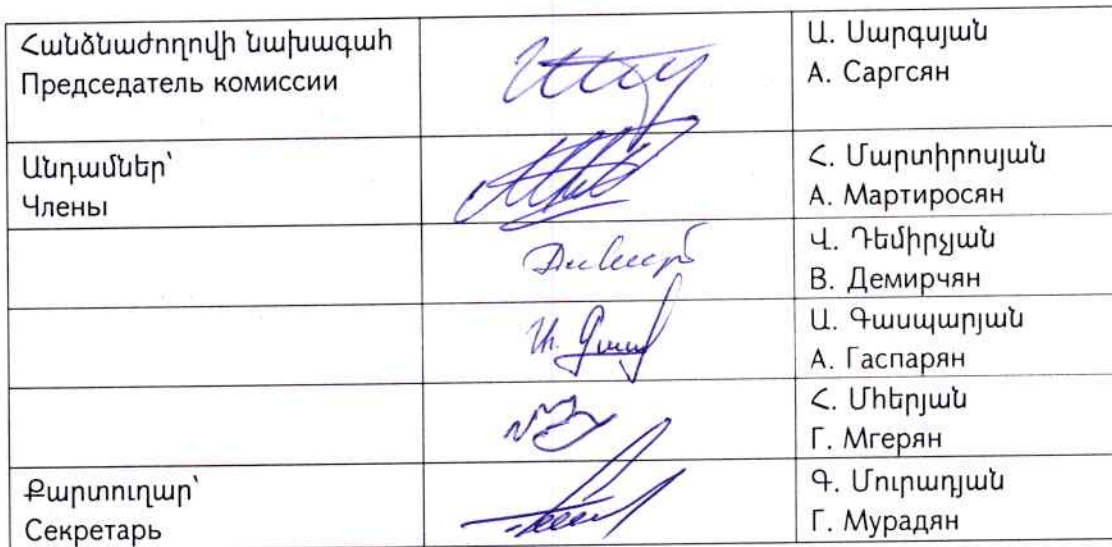 Հանձնաժողովի նախագահ
Председатель комиссии
Ա. Սարգսյան
А. Саргсян
Անդամներ՝
Члены
Հ. Մարտիրոսյան
А. Мартиросян
Վ. Դեմիրչյան
В. Демирчян
Ա. Գասպարյան
А. Гаспарян
Հ. Մհերյան
Г. Мгерян
Քարտուղար՝
Секретарь
Գ. Մուրադյան
Г. Мурадян